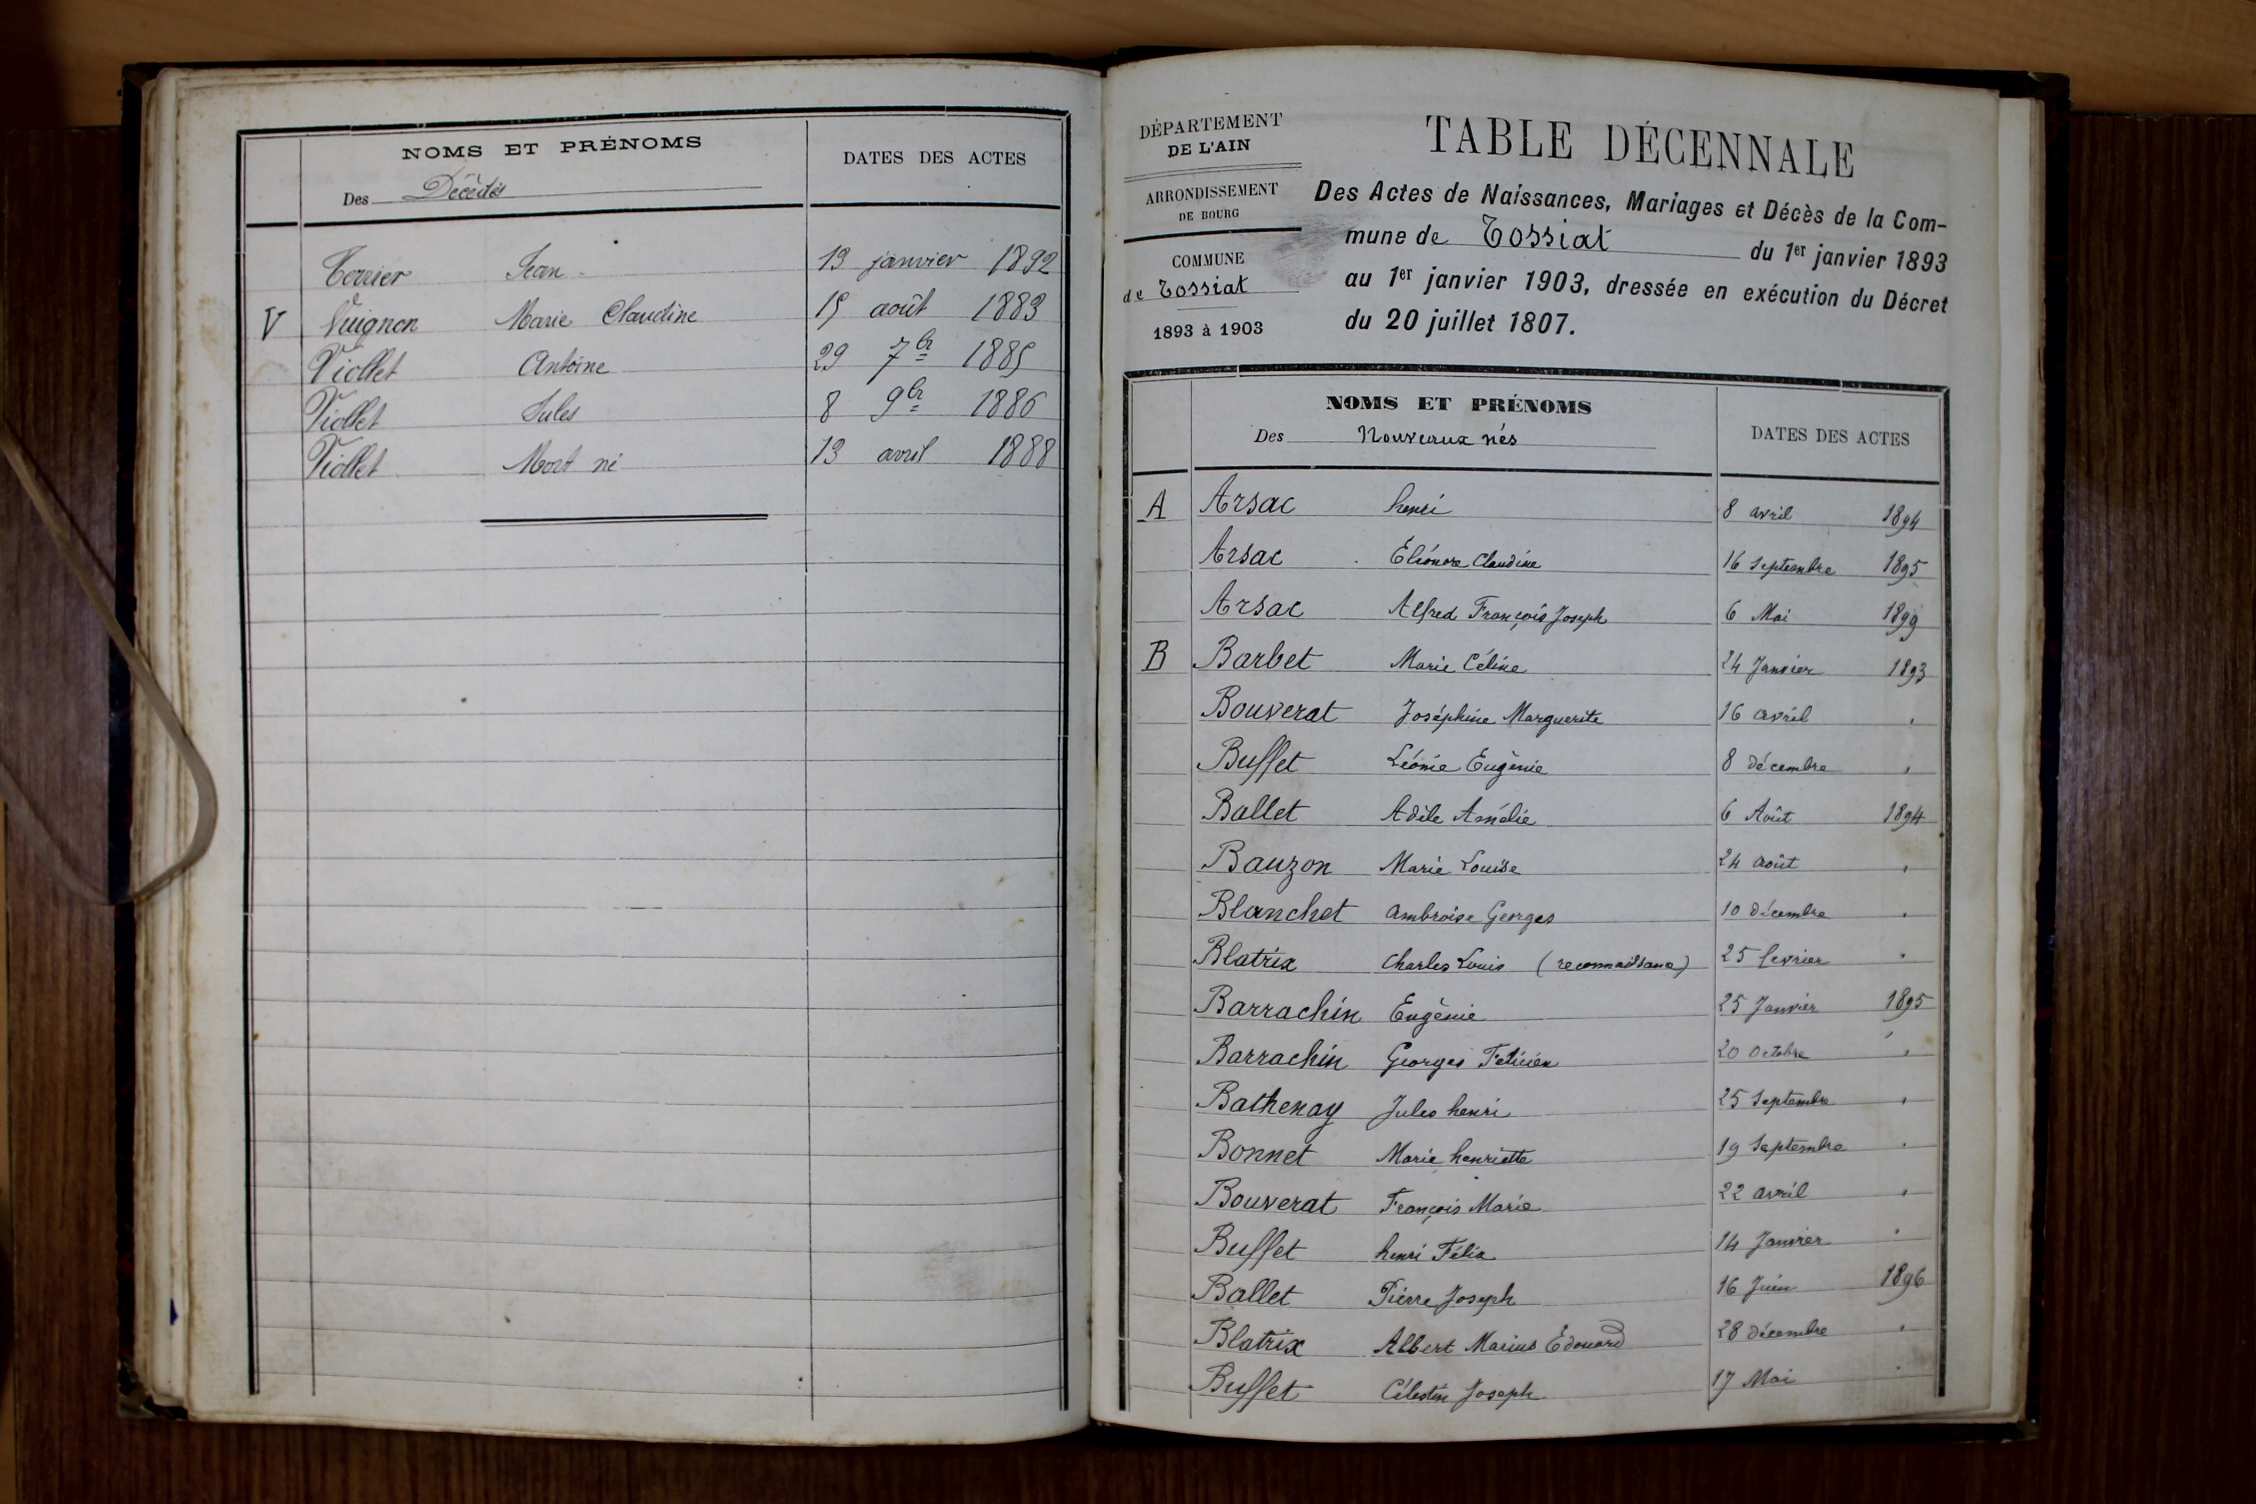 NOMS ET PRÉNOMS
DATES DES ACTES
Des Décédés
Terrier Jean 13 janvier 1892
V Vuignon Marie Claudine 15 août 1883
Viollet Antoine 29 7br 1885
Viollet Jules 8 9br 1886
Viollet Mort né 13 avril 1888
DÉPARTEMENT
DE L'AIN
ARRONDISSEMENT
DE BOURG
COMMUNE
de Tossiat
1893 à 1903
TABLE DÉCENNALE
Des Actes de Naissances, Mariages et Décès de la Com-
mune de Tossiat du 1er janvier 1893
au 1er janvier 1903, dressée en exécution du Décret
du 20 juillet 1807.
NOMS ET PRÉNOMS
Des Nouveaux nés
DATES DES ACTES
A Arsac henri 8 avril 1894
Arsac Éléonore Claudine 16 septembre 1895
Arsac Alfred François Joseph 6 Mai 1899
B Barbet Marie Céline 24 Janvier 1893
Bouverat Joséphine Marguerite 16 avril "
Buffet Léonie Eugénie 8 décembre "
Ballet Adèle Amélie 6 Août 1894
Bauzon Marie Louise 24 août "
Blanchet Ambroise Georges 10 décembre "
Blatrix Charles Louis (reconnaissance) 25 fevrier "
Barrachin Eugénie 25 Janvier 1895
Barrachin Georges Felicien 20 Octobre "
Bathenay Jules henri 25 septembre "
Bonnet Marie henriette 19 septembre "
Bouverat François Marie 22 avril "
Buffet henri Félix 14 Janvier "
Ballet Pierre Joseph 16 Juin 1896
Blatrix Albert Marius Édouard 28 décembre "
Buffet Célestin Joseph 17 Mai "